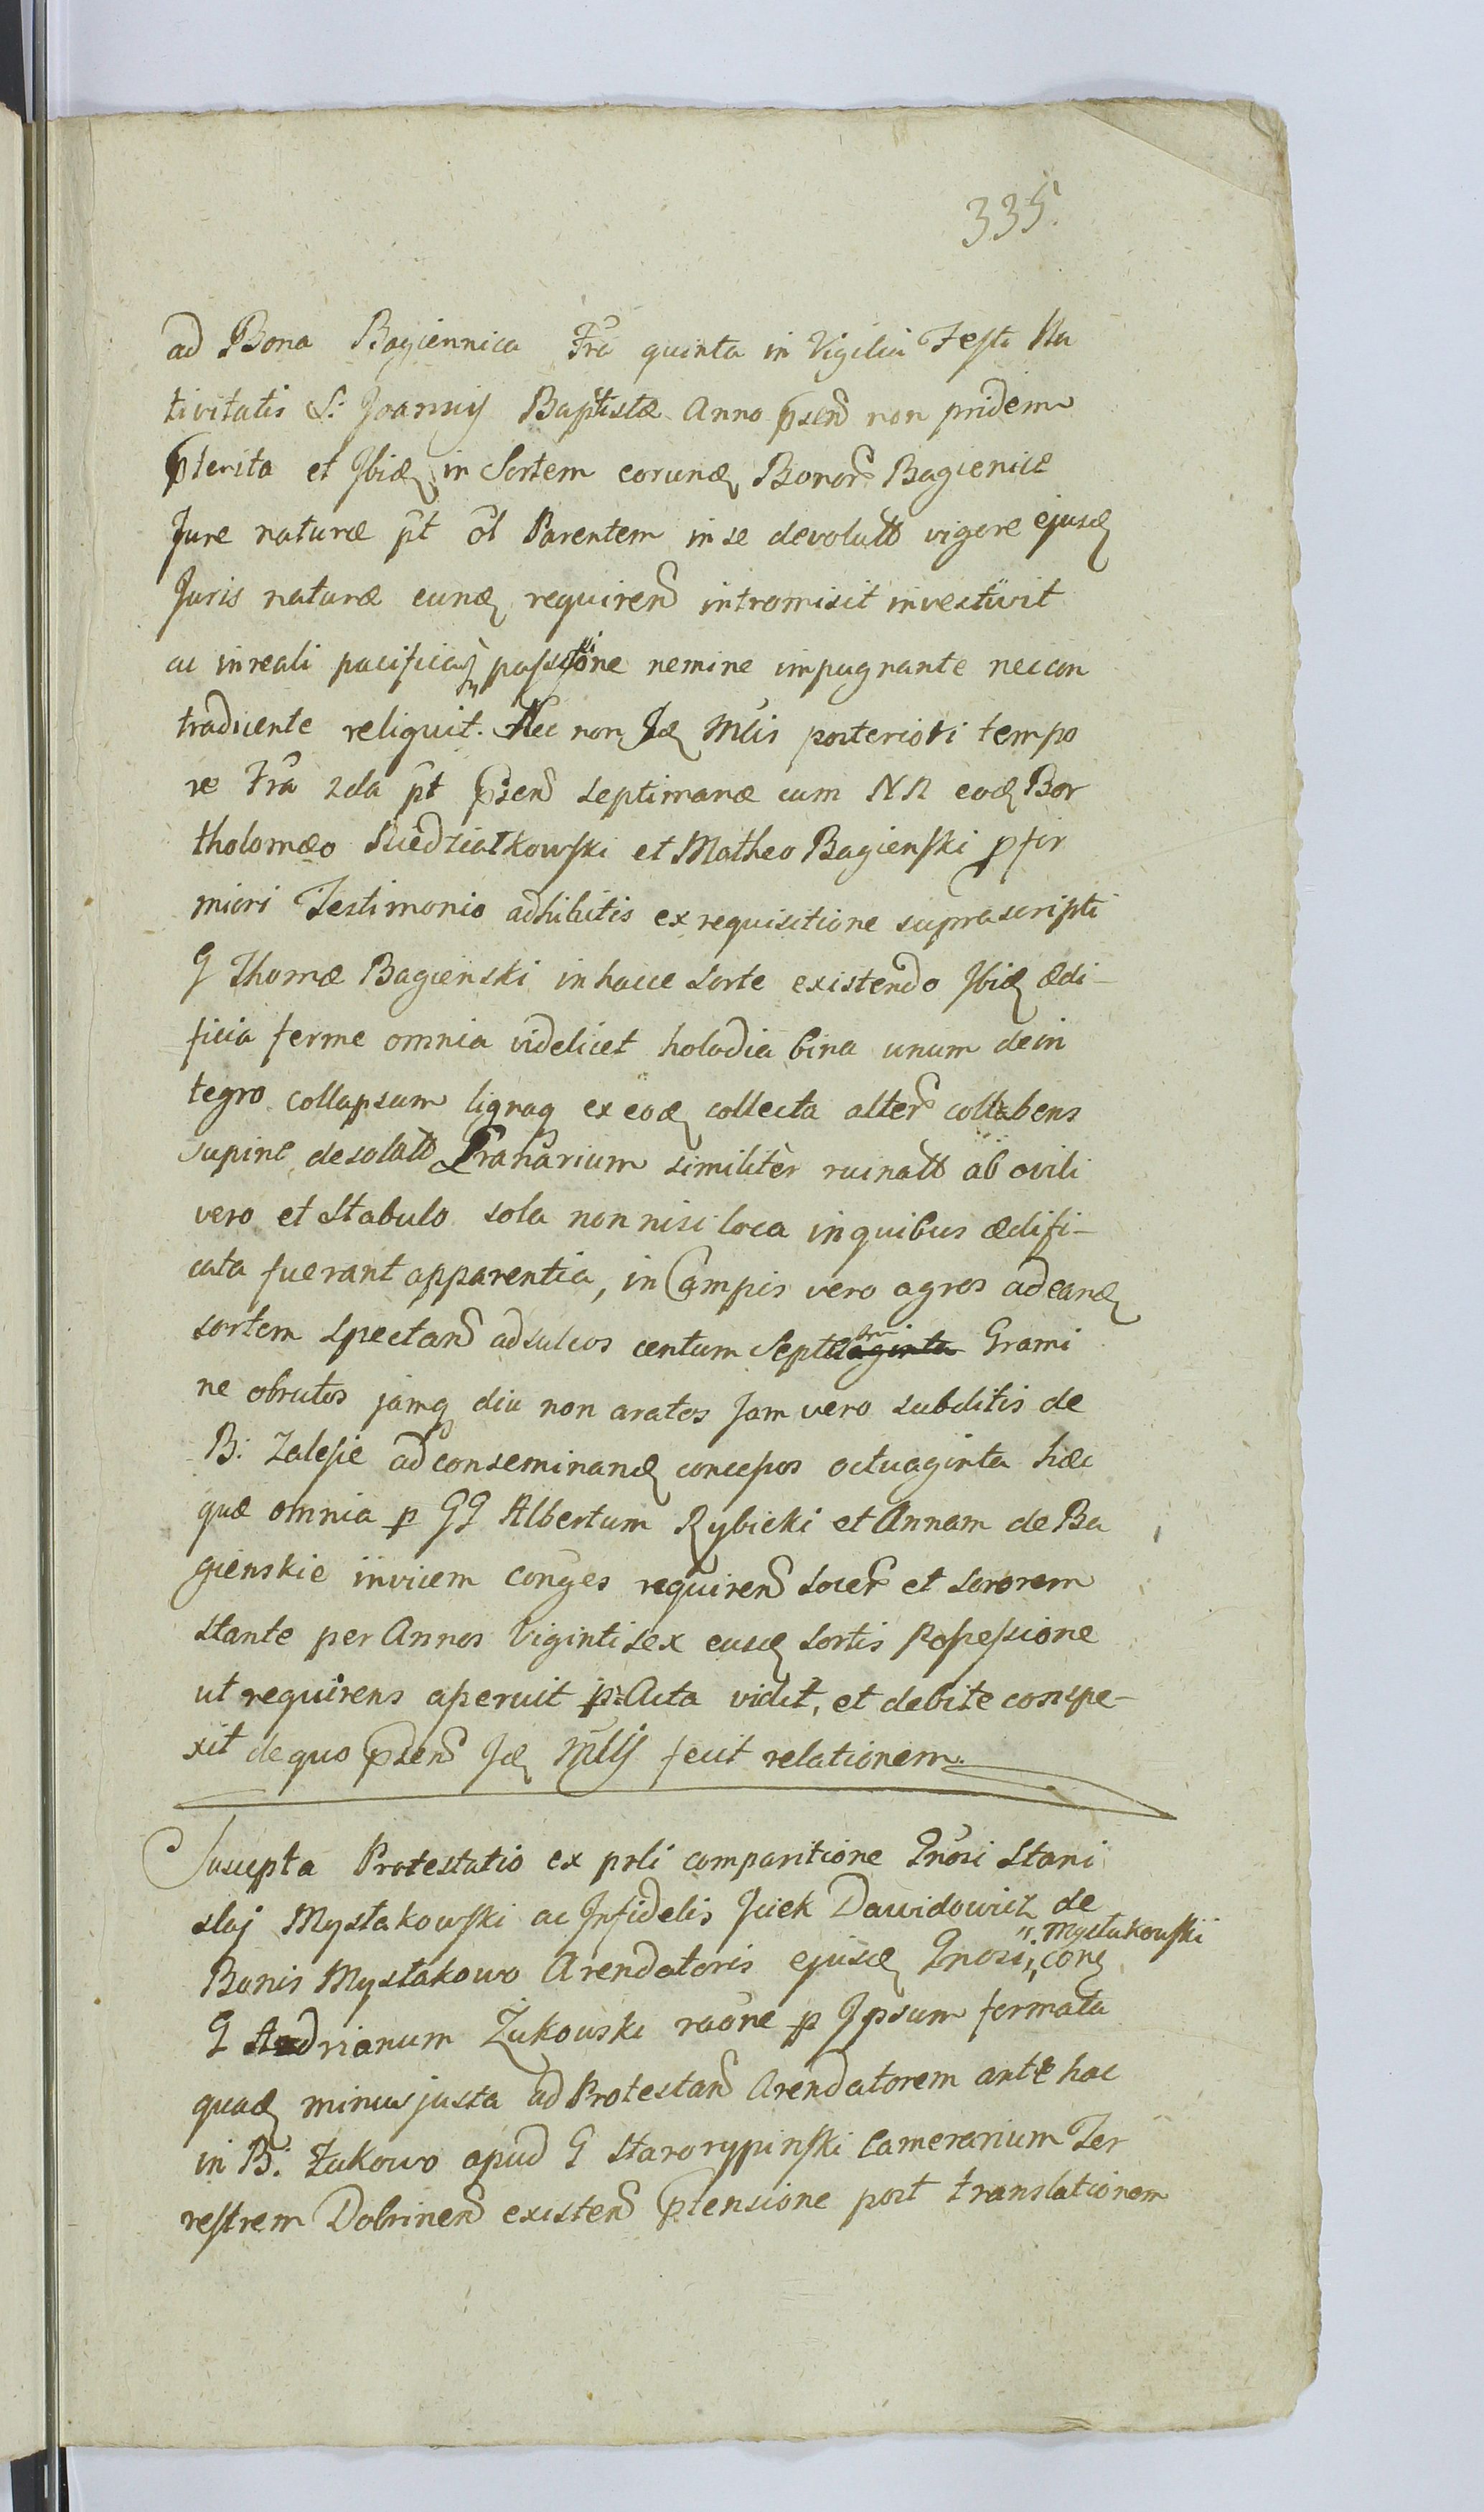 335.
ad Bona Bagiennica Fra quinta in Vigilia Festi Na
tivitatis S: Joannis Baptistæ Anno psen non pridem
pterita et Ibid in Sortem eorund Bonor Bagienice
Jure naturæ pt ol Parentem in se devolutt vigore ejusd
Juris naturæ eund requiren intromisit investivit
ac in reali pacificaq possione nemine impugnante nec con
tradicente reliquit. Nec non Id Mlis posteriori tempo
re Fra 2da pt psen septimanæ cum NN eod Bar
tholomæo Niedziałkowski et Matheo Bagienski p fir
miori Testimonio adhibitis ex requisitione suprascripti
G Thomæ Bagienski in hacce sorte existendo Ibid ædi-
ficia ferme omnia videlicet holodia bina unum de in
tegro collapsum lignaq ex eod collecta alter collabens
supine desolatt Granarium similiter ruinatt ab ovili
vero et Stabulo sola non nisi loca in quibus ædifi-
cata fuerant apparentia, in Campis vero agros ad eand
sortem spectan ad sulcos centum Septem Grami
ne obrutos jamq diu non aratos Jam vero subditis de
B: Zalesie ad conseminand concessos octuaginta hæc
quæ omnia p GG Albertum Rybicki et Annam de Ba
gienskie invicem Conges requiren socer et sororem
stante per Annos Viginti sex eusd sortis Possessione
ut requirens aperuit p: Acta vidit, et debite conspe-
xit de quo psen Id Mlis fecit relationem.
Suscepta Protestatio ex prli comparitione Gnosi Stani
slai Mystakowski ac Infidelis Jcek Dawidowicz de
Bonis Mystakowo Arendatoris ejusd Gnosi " Mystakowski con
G Andrianum Żukowski raone p Ipsum formata
quad minus justa ad Protestan Arendatorem antehac
in B: Żukowo apud G Starorypinski Camerarium Ter
restrem Dobrinen existen ptensione post translationem